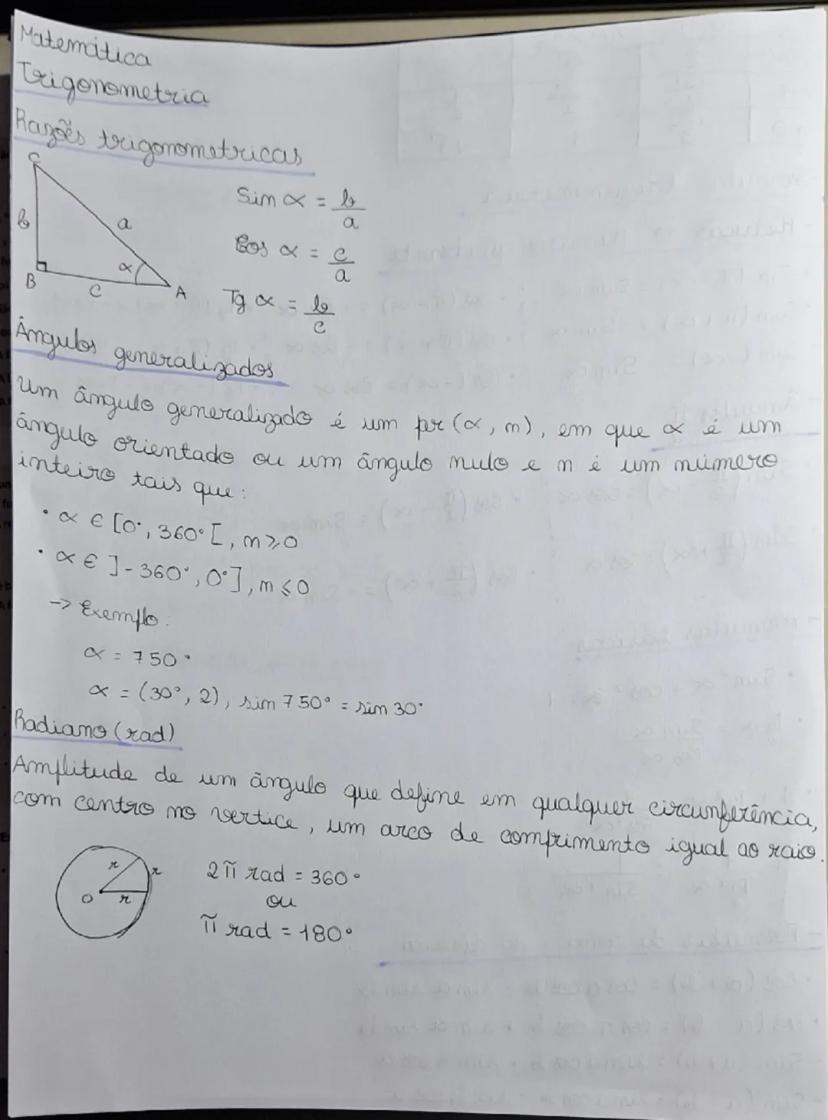 Matemática
Trigonometria
Razões trigonometricas
C
b
a
α
B
c
A
Sin α = b/a
Cos α = c/a
Tg α = b/c
Ângulos generalizados
Um ângulo generalizado é um pr (α, n), em que α é um
ângulo orientado ou um ângulo nulo e n é um número
inteiro tais que:
• α ∈ [0°, 360° [, n ⩾ 0
• α ∈ ] - 360°, 0°], n ⩽ 0
-> Exemplo:
α = 750°
α = (30°, 2), sin 750° = sin 30°
Radiano (rad)
Amplitude de um ângulo que define em qualquer circunferência,
com centro no vertice, um arco de comprimento igual ao raio.
r
r
O
r
2π rad = 360°
ou
π rad = 180°